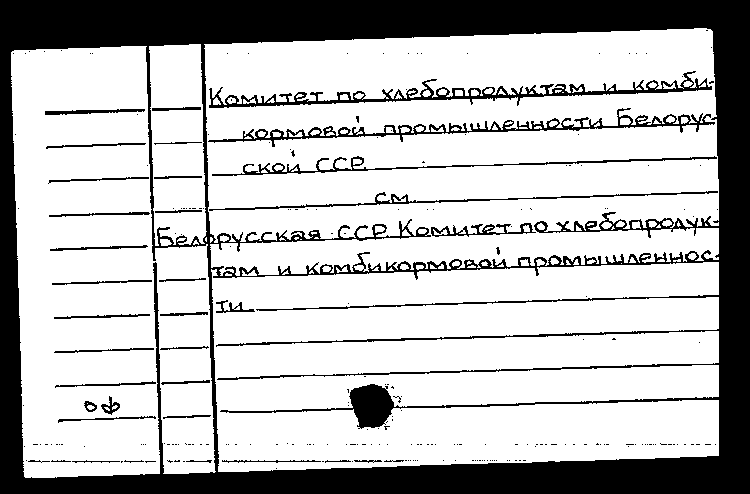 Комитет по хлебопродуктам и комби-
кормовой промышленности Белорус-
ской ССР
см.
Белорусская ССР. Комитет по хлебопродук-
там и комбикормовой промышленнос-
ти.
оф